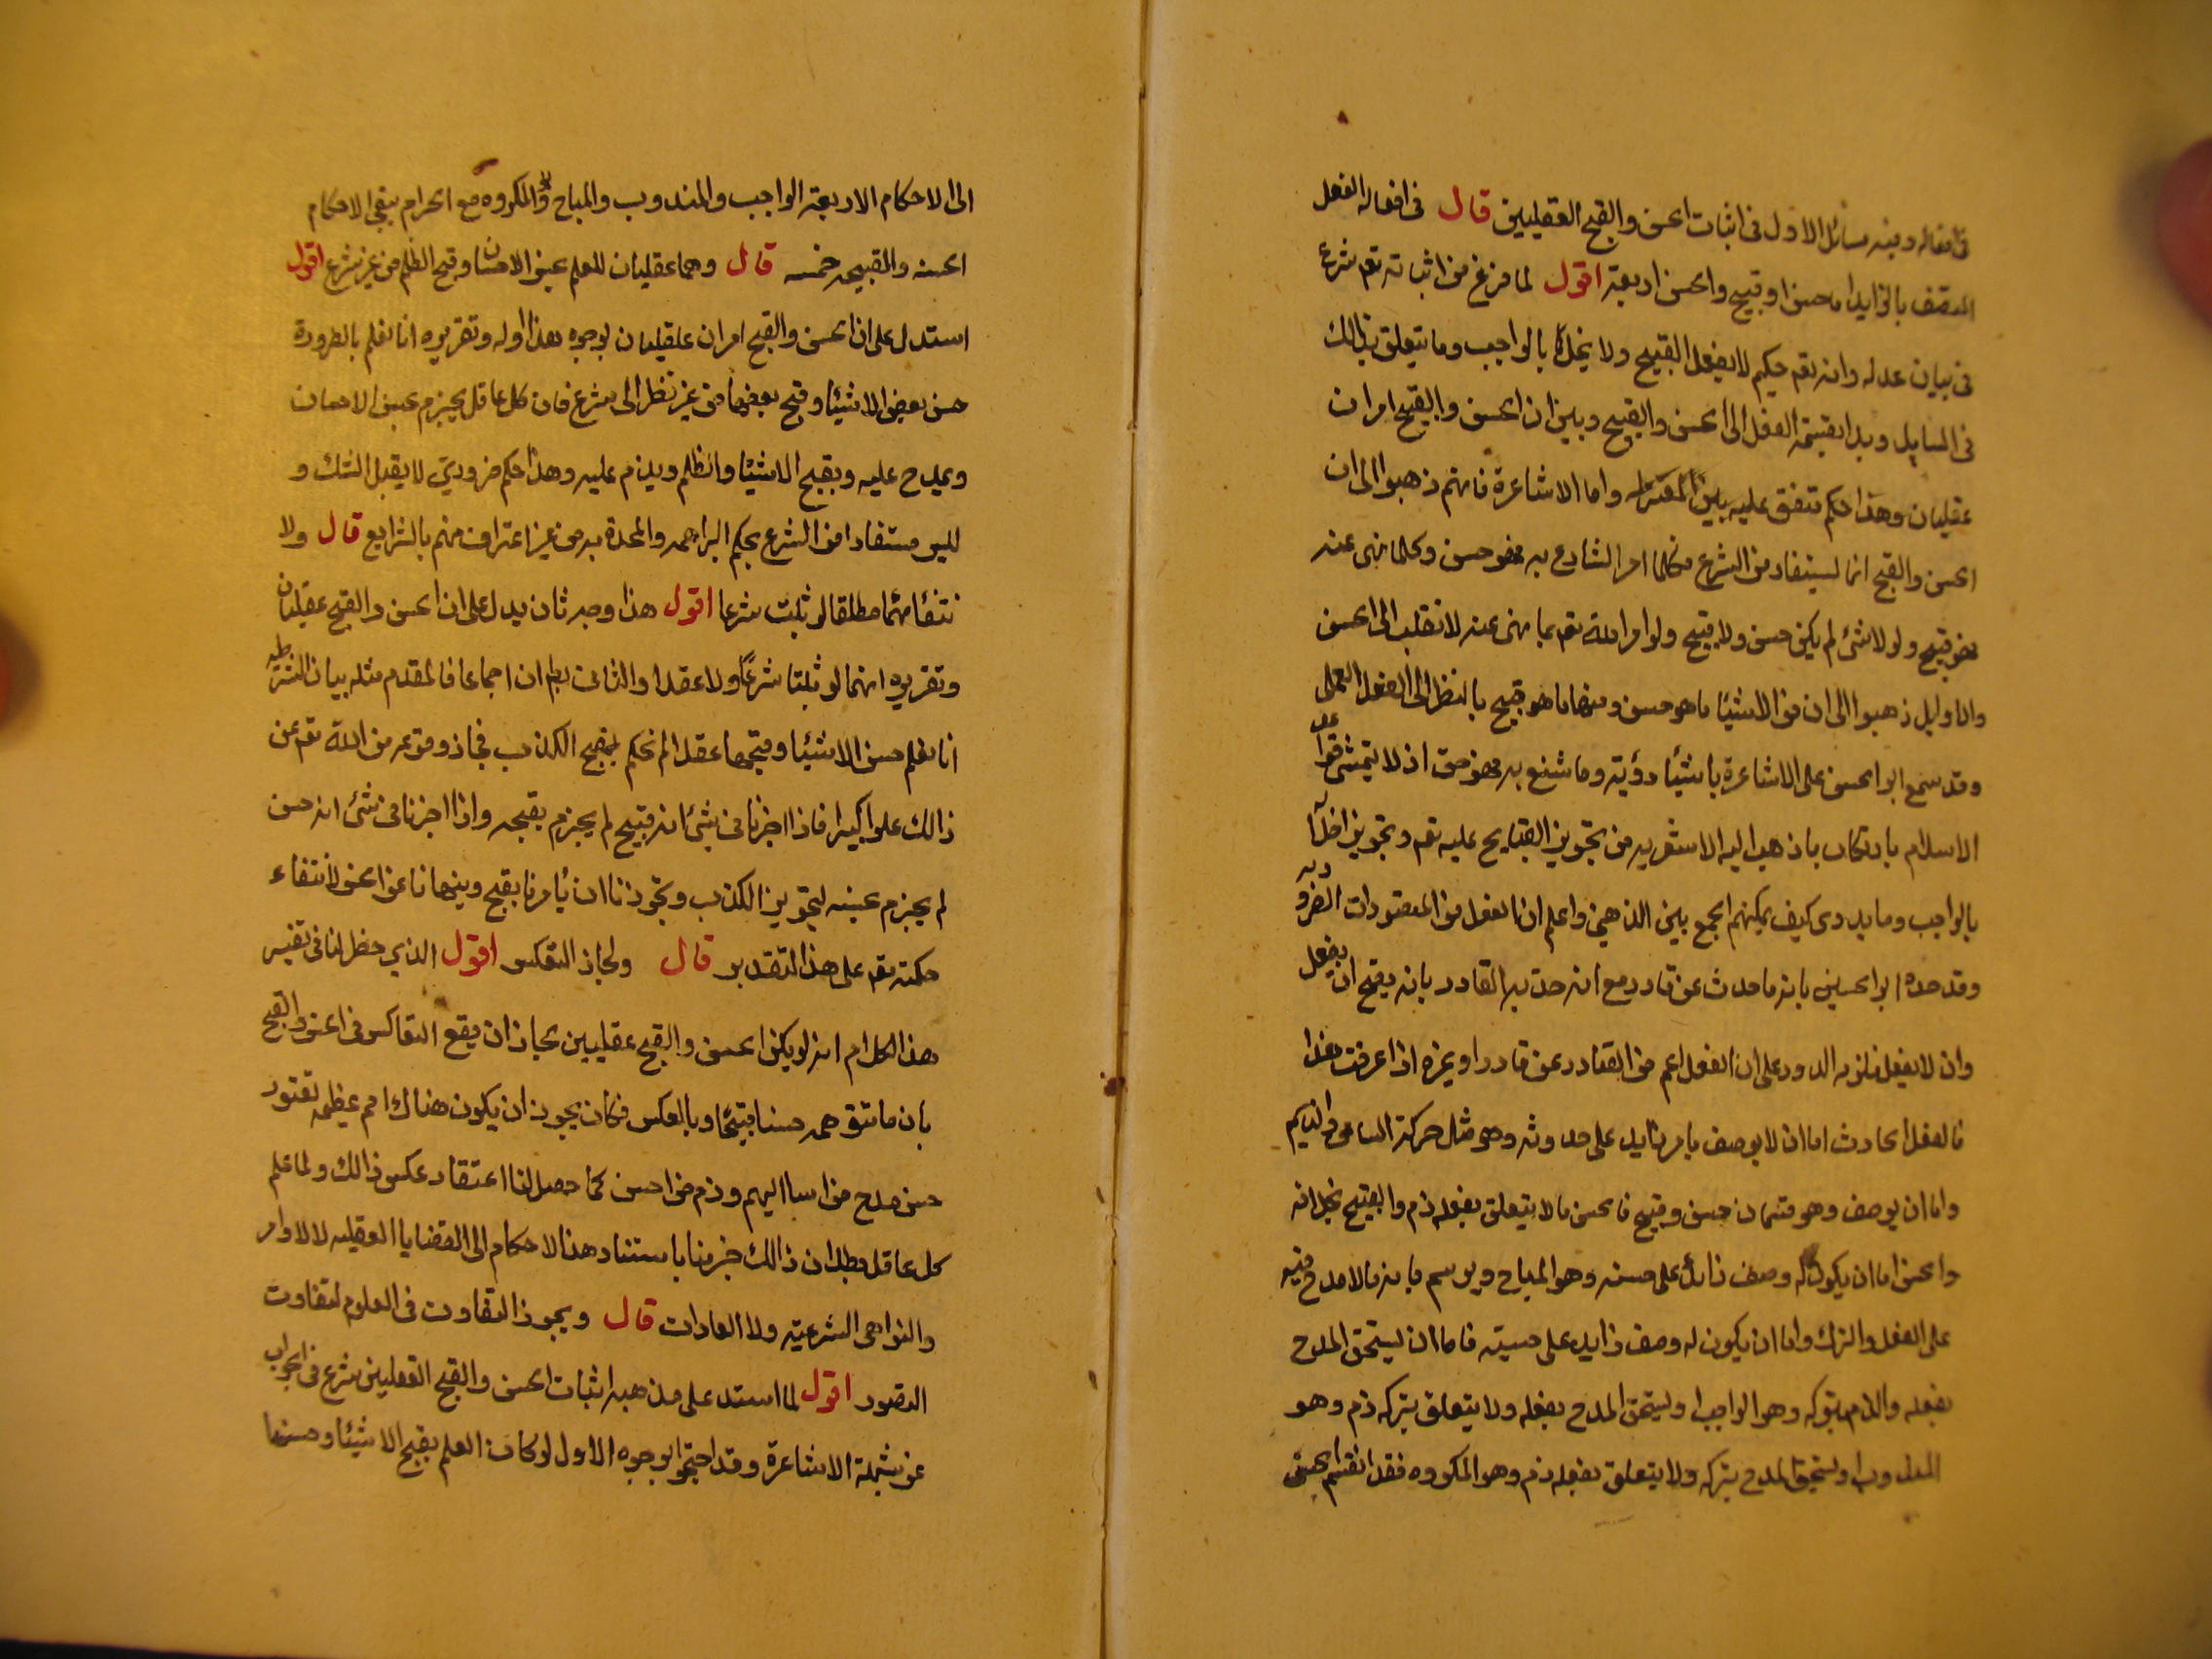 فى افعاله وفيه مسائل الاول فى اثبات الحسن والقبح العقليين قال فى افعاله الفعل
المتصف بالزايد اما حسن او قبيح والحسن اربعة اقول لما فرغ من اثباته تعم شرع
فى بيان عدله وانه تعم حكيم لا يفعل القبيح ولا يخل بالواجب وما يتعلق بذالك
فى المسايل وبدا بقسمة الفعل الى الحسن والقبيح وبين ان الحسن والقبيح امران
عقليان وهذا حكم متفق عليه بين المعتزله واما الاشاعرة فانهم ذهبوا الى ان
الحسن والقبح انما يستفاد من الشرع فكلما امر الشارع به فهو حسن وكلما نهى عنه
فهو قبيح ولولا شئ لم يكن حسن ولا قبيح ولو امر الله تعم بما نهى عنه لانقلب الى الحسن
والاوايل ذهبوا الى ان من الاشيئا ما هو حسن ومنها ما هو قبيح بالنظر الى العقل العملى
وقد سمع ابو الحسن على الاشاعرة باشيئا رؤيته وما شنع به فهو حق اذ لا يتمشى قواعد
الاسلام بارتكاب ما ذهب اليه الاشعريه من تجويز القبايح عليه تعم وتجويز اخلاله
بالواجب وما يدرى كيف يمكنهم الجمع بين الذهبين واعلم ان الفعل من المتصورات الضروريه
وقد حده ابو الحسين بانه ما حدث عن قادر مع انه حد به القادر بانه يصح ان يفعل
وان لا يفعل فلزمه الدور على ان الفعل اعم من القادر عن قادر او غيره اذا عرفت هذا
فالفعل الحادث اما ان لا يوصف بامر زايد على حدوثه وهى مثل حركة الساهى والنايم
واما ان يوصف وهو قسمان حسن وقبيح فالحسن ما لا يتعلق بفعله ذم والقبيح بخلافه
والحسن اما ان يكون له وصف زائد على حسنه وهو المباح ويرسم بانه ما لا مدح فيه
على الفعل والترك واما ان يكون له وصف زايد على حسنه فاما ان يستحق المدح
بفعله والذم بتركه وهو الواجب او يستحق المدح بفعله ولا يتعلق بتركه ذم وهو
المندوب او يستحق المدح بتركه ولا يتعلق بفعله ذم وهو المكروه فقد انقسم الحسن
الى الاحكام الاربعة الواجب والمندوب والمباح والمكروه مع الحرام يبقى الاحكام
الحسنه والقبيحه خمسه قال وهما عقليان للعلم بحسن الاحسان وقبح الظلم من غير شرع اقول
استدل على ان الحسن والقبح امران عقليان بوجوه هذا اوله وتقريره انا نعلم بالظرورة
حسن بعض الاشيئا وقبح بعضها من غير نظر الى شرع فان كل عاقل يجزم بحسن الاحسان
ويمدح عليه وبقبح الاشيئا والظلم ويذم عليه وهذا حكم ضروري لا يقبل الشك و
ليس مستفادا من الشرع بحكم البراهمه والملحدة به من غير اعتراف منهم بالشرايع قال ولا
نتفائهما مطلقا لو ثبت شرعا اقول هذا وجه ثان يدل على ان الحسن والقبح عقليان
وتقريره انهما لو ثبتا شرعًا ولا عقلا والثانى بطلان اجماعا فالمقدم مثله بيان الشرطيه
انا لو لم نعلم حسن الاشيئا وقبحها عقلا لم نحكم بقبح الكذب فجاز وقوعه من الله تعم عن
ذالك علوا كبيرا فاذا اخبرنا فى شئ انه قبيح لم يجزم بقبحه واذا اخبرنا فى شئ انه حسن
لم يجزم بحسنه لتجويز الكذب وتجوزنا ان يأمرنا بقبيح وينهانا عن الحسن لانتفاء
حكمته تعم على هذا التقدير قال ولجاز التعكس اقول الذي حظر لنا فى تفسير
هذا الكلام انه لو لم يكن الحسن والقبح عقليين لجاز ان يقع التعاكس فى الحسن والقبح
بان ما نتوهمه حسنا قبيحًا وبالعكس فكان يجوز ان يكون هناك امم عظيمه تعتقد
حسن مدح من اسا اليهم وذم من احسن كما حصل لنا اعتقاد عكس ذالك ولما علم
كل عاقل بطلان ذالك جزمنا باستناد هذه الاحكام الى القضايا العقليه لا الاوامر
والنواهى الشرعيه ولا العادات قال ويجوز التفاوت فى العلوم لتفاوت
التصور اقول لما استدل على مذهبه اثبات الحسن والقبح العقليين شرع فى الجواب
عن شبهة الاشاعرة وقد احتجوا بوجوه الاول لو كان العلم بقبح الاشيئا وحسنها